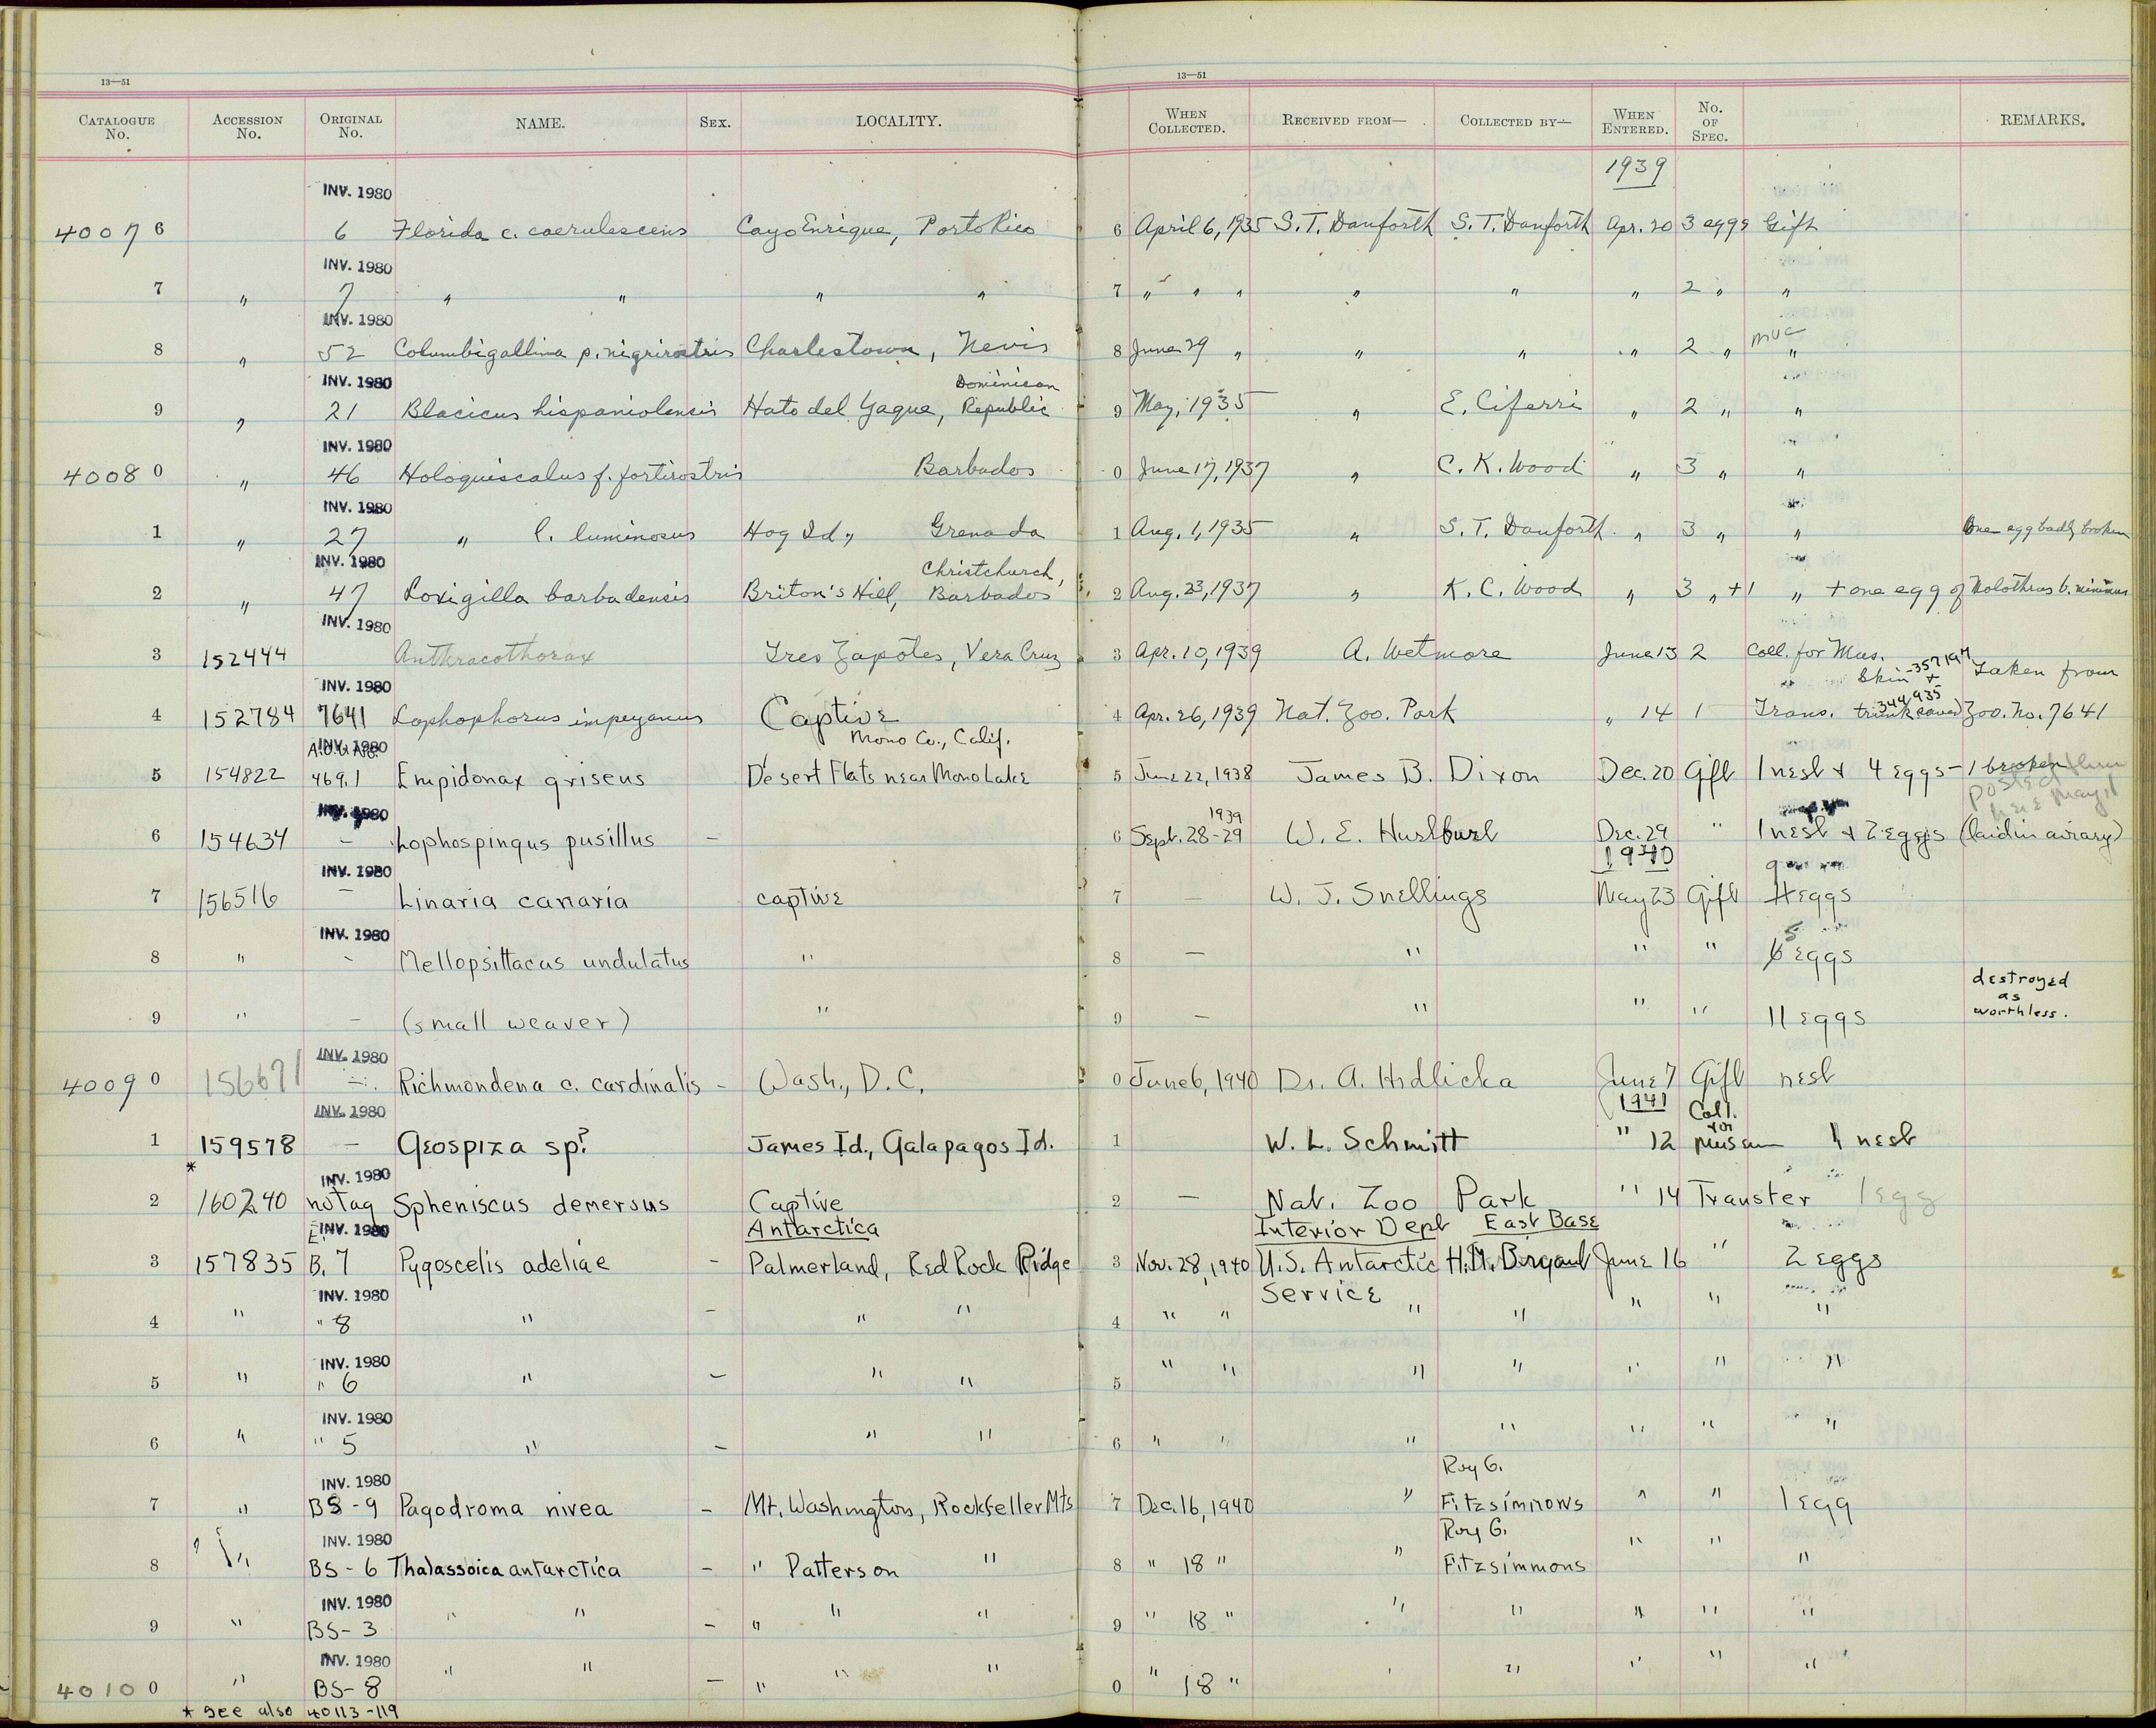 13—51 13—51
CATALOGUE No. ACCESSION No. ORIGINAL No. NAME. SEX. LOCALITY. WHEN COLLECTED. RECEIVED FROM— COLLECTED BY— WHEN ENTERED. No. OF SPEC. REMARKS.
1939
INV. 1980
4007 6 6 Florida c. caerulescens Cayo Enrique, Porto Rico 6 April 6, 1935 S. T. Danforth S. T. Danforth Apr. 20 3 eggs Gift
INV. 1980
7 " 7 " " " " 7 " " " " " " 2 " "
INV. 1980
8 " 52 Columbigallina p. nigrirostris Charlestown, Nevis 8 June 29 " " " " 2 " "
INV. 1980 Dominican
9 " 21 Blacicus hispaniolensis Hato del Yaque, Republic 9 May, 1935 " E. Ciferri " 2 " "
INV. 1980
4008 0 " 46 Holoquiscalus f. fortirostris Barbados 0 June 17, 1937 " C. K. Wood " 3 " "
INV. 1980
1 " 27 " l. luminosus Hog Id., Grenada 1 Aug. 1, 1935 " S. T. Danforth " 3 " " One egg badly broken
INV. 1980 Christchurch,
2 " 47 Loxigilla barbadensis Briton's Hill, Barbados 2 Aug. 23, 1937 " K. C. Wood " 3 " +1 " + one egg of Molothrus b. minimus
INV. 1980
3 152444 Anthracothorax Tres Zapotes, Vera Cruz 3 Apr. 10, 1939 A. Wetmore June 13 2 Coll. for Mus.
INV. 1980 Skin -357197 + Taken from
344,935
4 152784 7641 Lophophorus impeyanus Captive 4 Apr. 26, 1939 Nat. Zoo. Park " 14 1 Trans. trunk saved Zoo. No. 7641
INV. 1980 A.O.U. No. Mono Co., Calif.
5 154822 469.1 Empidonax griseus Desert Flats near Mono Lake 5 June 22, 1938 James B. Dixon Dec. 20 Gift 1 nest & 4 eggs - 1 broken
INV. 1980 1939
6 154634 - Lophospingus pusillus - 6 Sept. 28-29 W. E. Hurlburt Dec. 29 " 1 nest & 2 eggs (laid in aviary)
INV. 1980 1940
7 156516 - Linaria canaria captive 7 - W. J. Snellings May 23 Gift 4 eggs
INV. 1980 5
8 " - Mellopsittacus undulatus " 8 - " " " 6 eggs
destroyed as worthless.
9 " - (small weaver) " 9 - " " " 11 eggs
INV. 1980
4009 0 156671 - Richmondena c. cardinalis - Wash., D.C. 0 June 6, 1940 Dr. A. Hrdlicka June 7 Gift nest
INV. 1980 1941 Coll. for
1 159578 - Geospiza sp? James Id., Galapagos Id. 1 W. L. Schmitt " 12 Museum 1 nest
* INV. 1980
2 160240 no tag Spheniscus demersus Captive 2 - Nat. Zoo Park " 14 Transfer 1 egg
INV. 1980 Antarctica Interior Dept East Base
3 157835 B. 7 Pygoscelis adeliae - Palmerland, Red Rock Ridge 3 Nov. 28, 1940 U.S. Antarctic H. M. Bryant June 16 " 2 eggs
INV. 1980 Service
4 " " 8 " - " " 4 " " " " " " "
INV. 1980
5 " " 6 " - " " 5 " " " " " " "
INV. 1980
6 " " 5 " - " " 6 " " " " " " "
INV. 1980 Roy G.
7 " BS-9 Pagodroma nivea - Mt. Washington, Rockefeller Mts 7 Dec. 16, 1940 " Fitzsimmons " " 1 egg
INV. 1980 Roy G.
8 " BS-6 Thalassoica antarctica - " Patterson " 8 " 18 " " Fitzsimmons " " "
INV. 1980
9 " BS-3 " " - " " " 9 " 18 " " " " " "
INV. 1980
4010 0 " BS-8 " " - " " " 0 " 18 " " " " "
* See also 40113-119